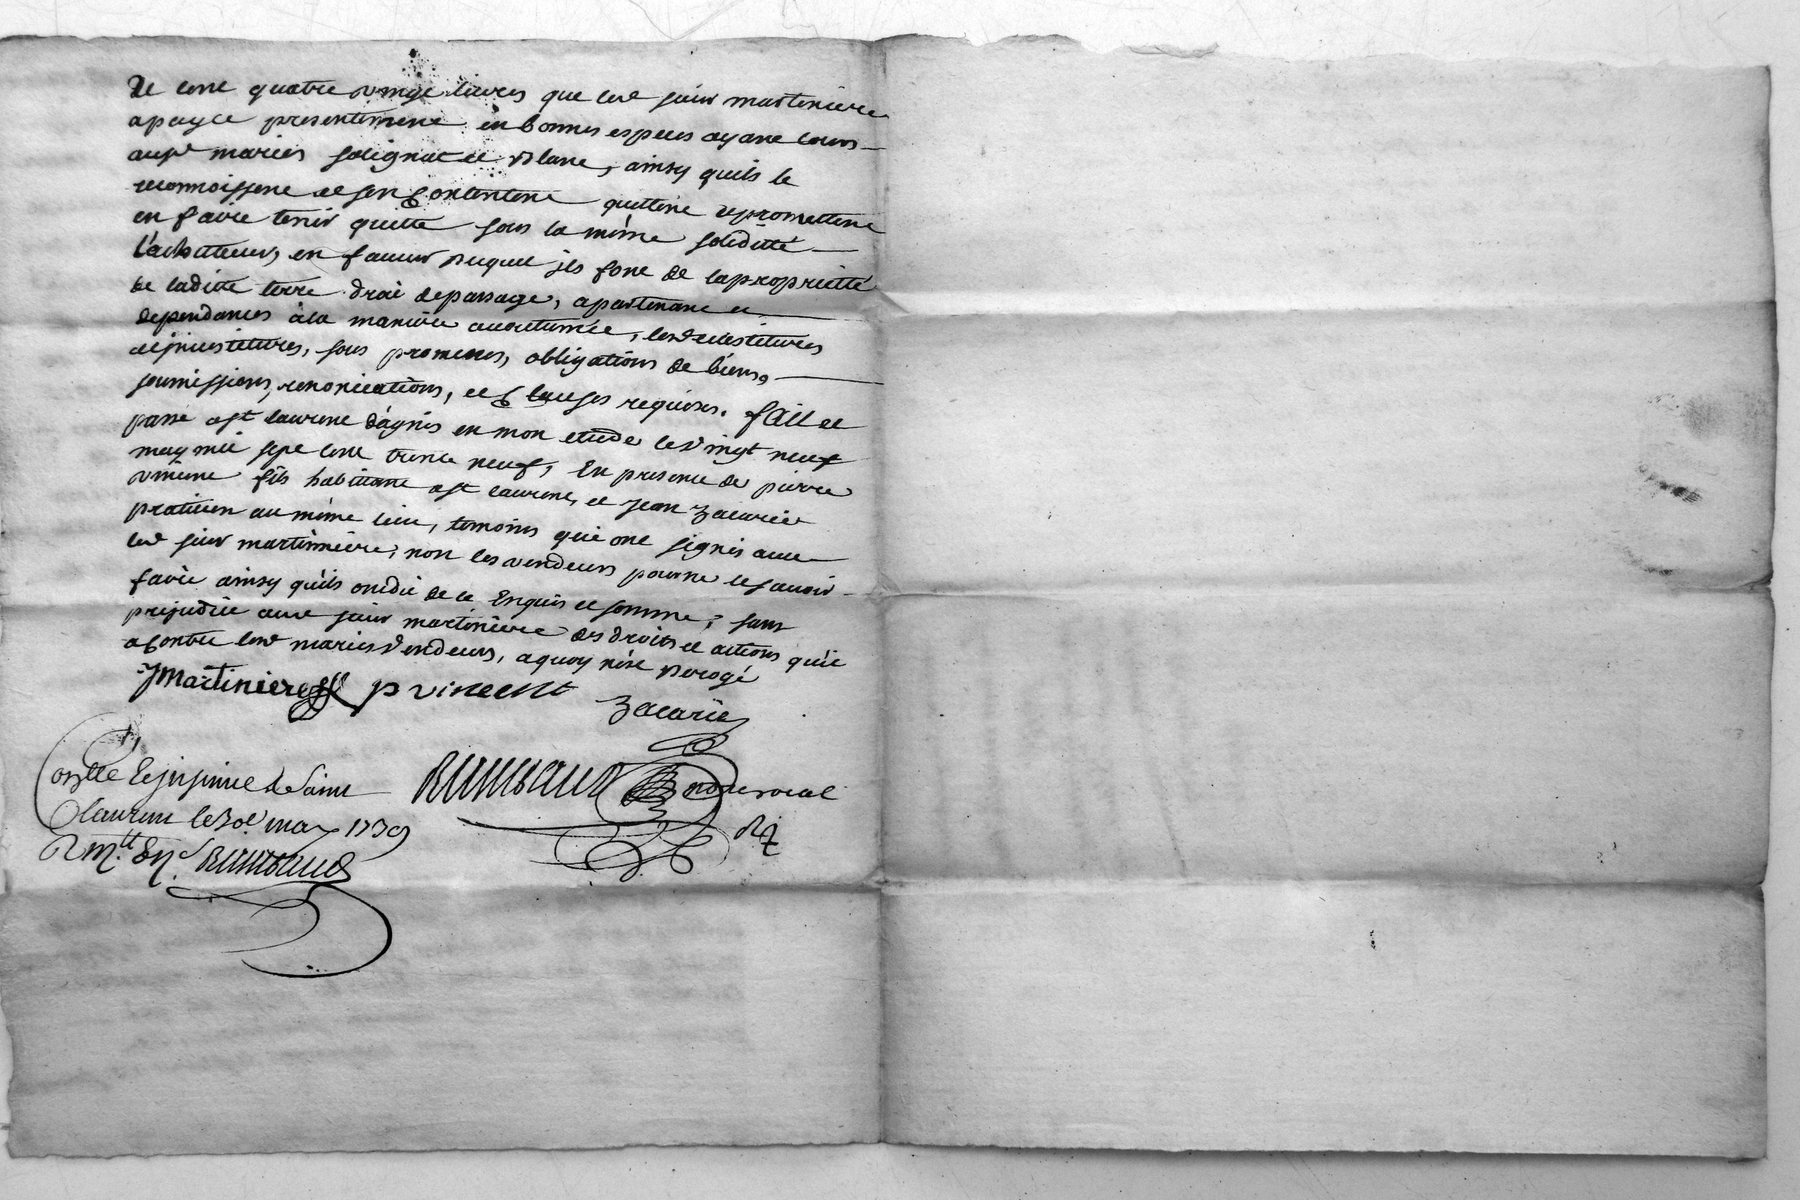 de cent quatre vingt livres que led sieur martiniere
a payée presentement en bonnes especes ayant cours
auxd mariés solignac et blanc, ainsy quils le
reconnoissent de s'en contentent quittent et promettent
en faire tenir quitte sous la même solidité
l'achetteur, en faveur duquel ils font de la proprietté
de laditte terre droit de passage, apartenant et
dependances à la maniere accoutumée, les devestitures
et investitures, sous promesses, obligations de biens,
soumissions, renonciations, et clauses requises. fait et
passé a st laurent d'agnis en mon etude le vingt neuf
may mil sept cent trente neuf, En presence de pierre
vincent fils habitant a st laurent, et jean Zacarie
praticien au même lieu, temoins qui ont signés avec
led sieur martiniere, non les vendeurs pour ne le savoir
faire ainsy quils ont dit de ce Enquis et sommé, sans
prejudice aud sieur martiniere des droits et actions qu'il
a contre lesd mariés vendeurs, a quoy n'est derogé
JMartiniere p vincent
Zacarie
Riimbaud nore roial
Conlle et insinué de Saint
laurent le 30e may 1739
R mtt En. Riimbaud